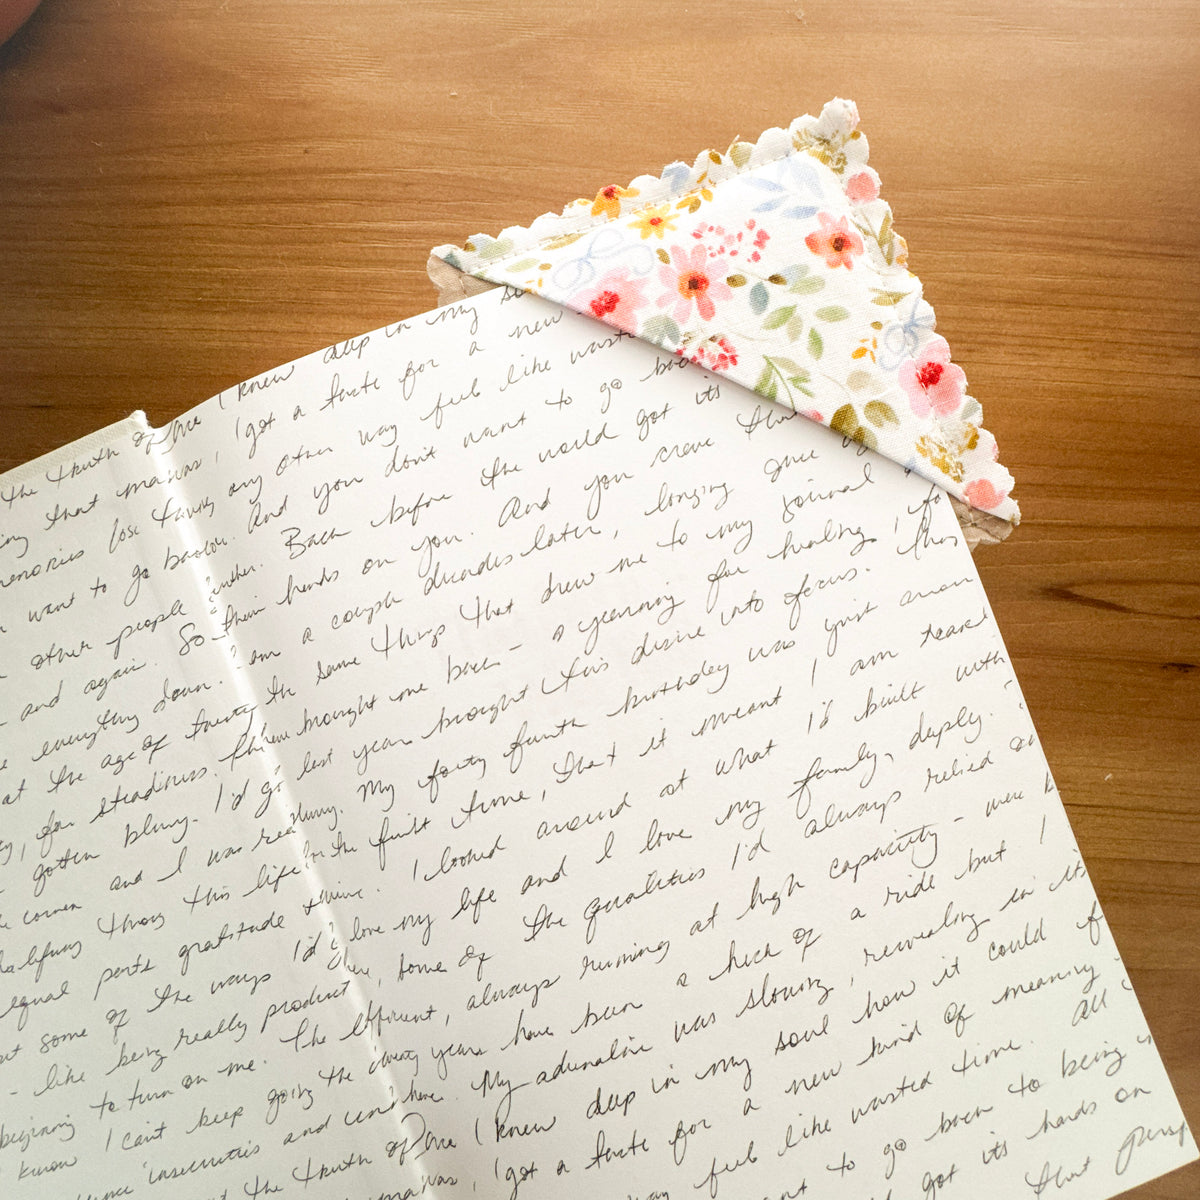 the truth of me I knew deep in my so
ing that ma was, I got a taste for a new
memories lose any other way feel like wasti
want to go back And you don't want to go back
other people further. Back before the world got its
and again. So their hands on you. And you crave that
everything down. I am a couple decades later, longing once
at the age of twenty the same things that drew me to my journal
for steadiness. brought me back - a yearning for healing,
gotten blurry. I'd go last year brought this desire into focus.
corner and I was rea blurry. My forty fourth birthday was just aroun
halfway through this life for the first time, that it meant I am
equal parts gratitude + I looked around at what I'd built with
out some of the ways I'd love my life and I love my family, deeply.
- like being really product some of the qualities I'd always relied on
beginning to turn on me. The efficient, always running at high capacity - were b
know I can't keep going the twenty years have been a heck of a ride but I
insecurities and here. My adrenaline was slowing, revealing in its
the truth of me I knew deep in my soul how it could f
was, I got a taste for a new kind of meaning -
way feel like wasted time. All
to go back to being
got its hands on
that